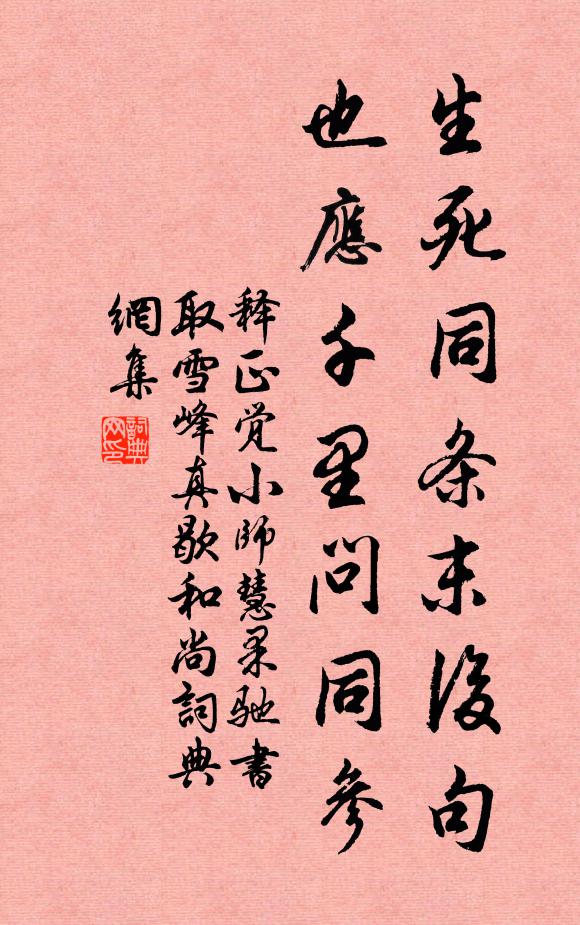 生死同条末後句
也應千里問同參
释正觉小师慧杲驰书
取雪峰真歇和尚詞典
網集
詞典網印